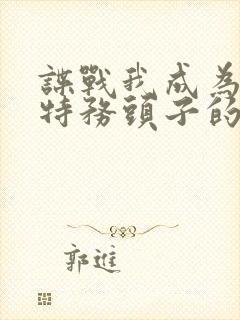 諜戰我成為
特務頭子的
郭進